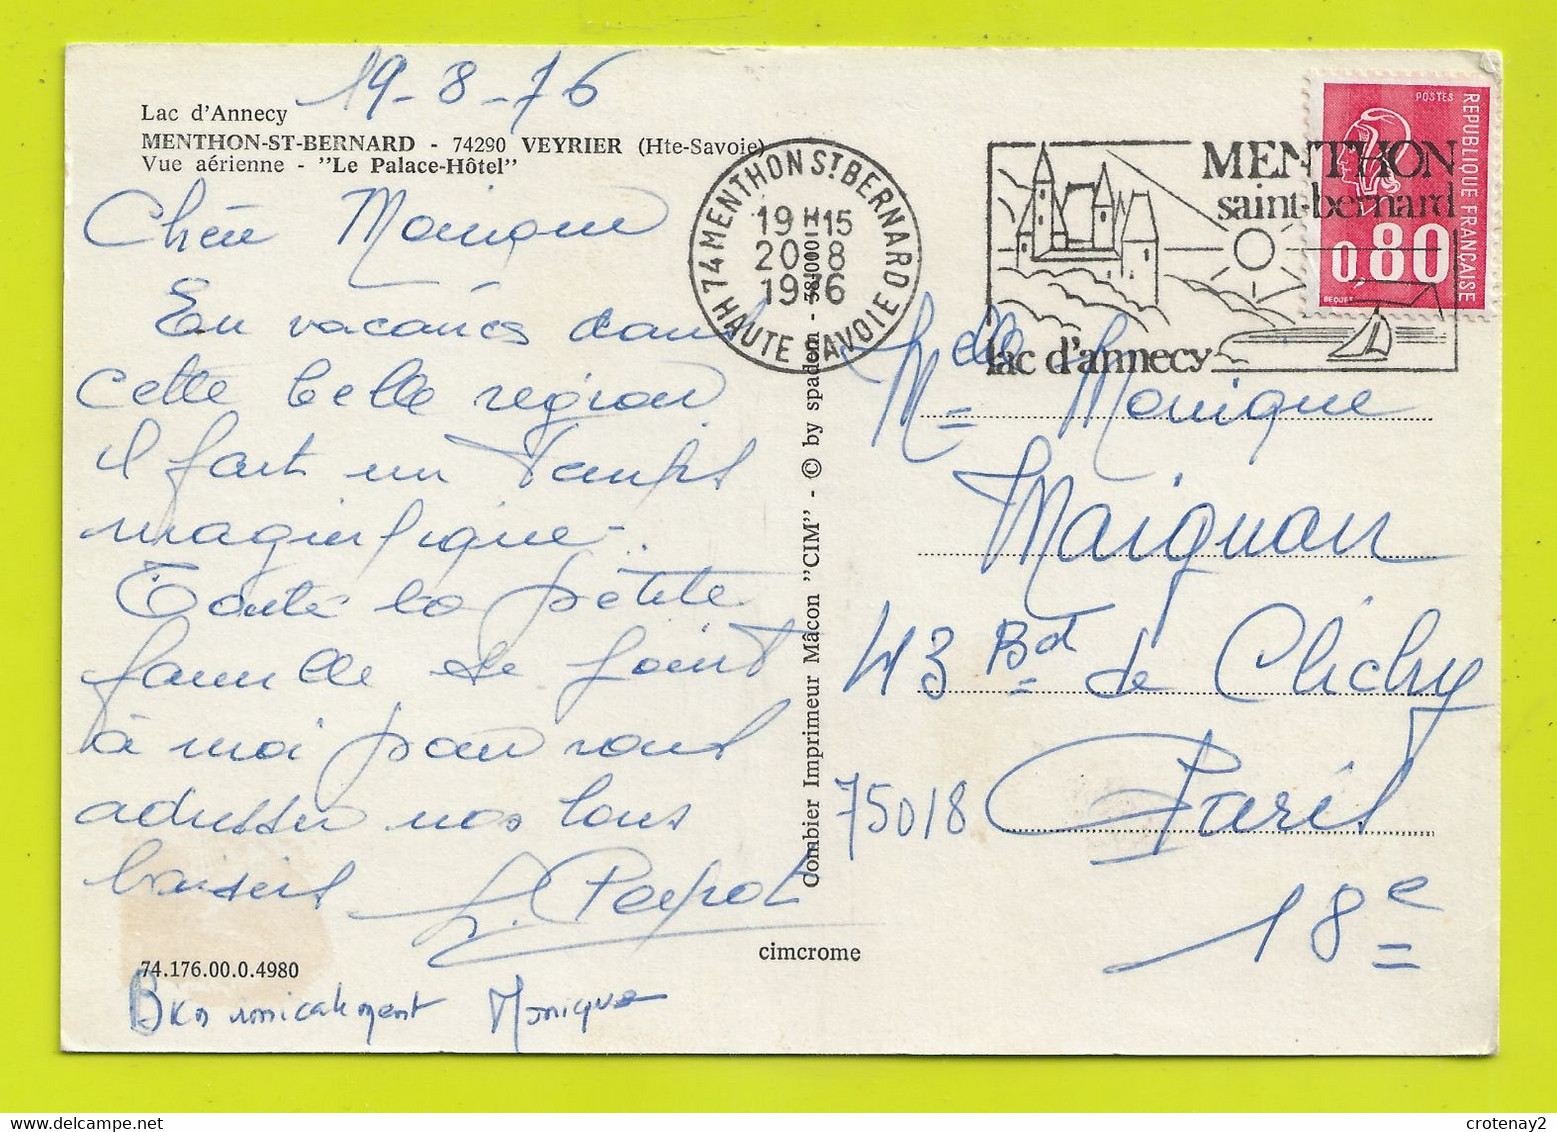 19-8-76
Lac d'Annecy
MENTHON-ST-BERNARD - 74290 VEYRIER (Hte-Savoie)
Vue aérienne - "Le Palace-Hôtel"
Chère Monique
En vacances dans
cette belle region
il fait un temps
magnifique -
Toute la petite
famille se joint
à moi pour vous
adresser nos bons
baisers
Peyrot
74.176.00.0.4980
Bien amicalement Monique
cimcrome
Combier Imprimeur Mâcon "CIM" - © by spadem - 381000
74 MENTHON ST BERNARD
19 H 15
20 - 8
1976
HAUTE SAVOIE
MENTHON
saint-bernard
lac d'annecy
POSTES
REPUBLIQUE FRANÇAISE
0,80
BEQUET
Melle Monique
Maignan
43 Bd de Clichy
75018 Paris
18e
crotenay2